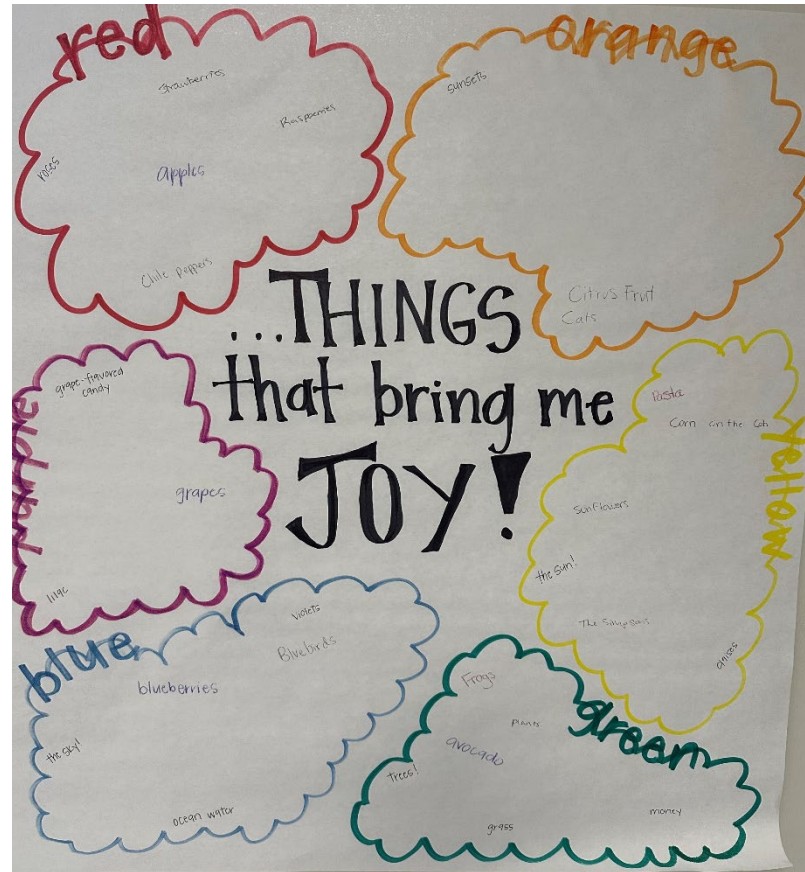 red
Strawberries
Raspberries
roses
apples
Chile Peppers
orange
sunsets
Citrus Fruit
Cats
...THINGS
that bring me
JOY!
purple
grape-flavored
candy
grapes
lilac
yellow
Pasta
Corn on the Cob
Sunflowers
the sun!
The Simpsons
daisies
blue
violets
Bluebirds
blueberries
the sky!
ocean water
green
Frogs
Plants
avocado
trees!
money
grass